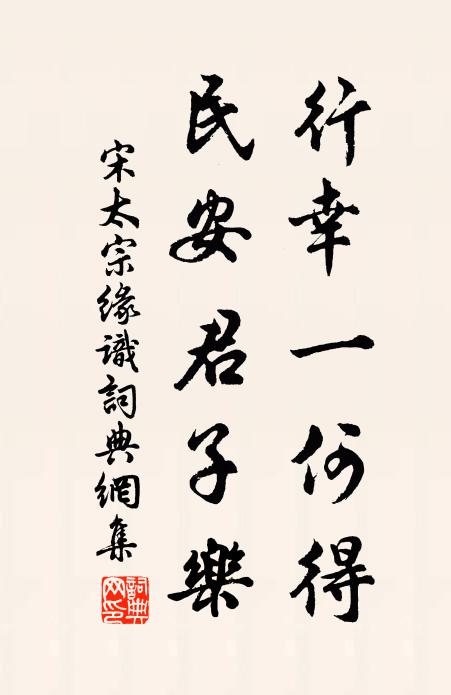 行幸一何得
民安君子樂
宋太宗緣識詞典網集
詞典網印